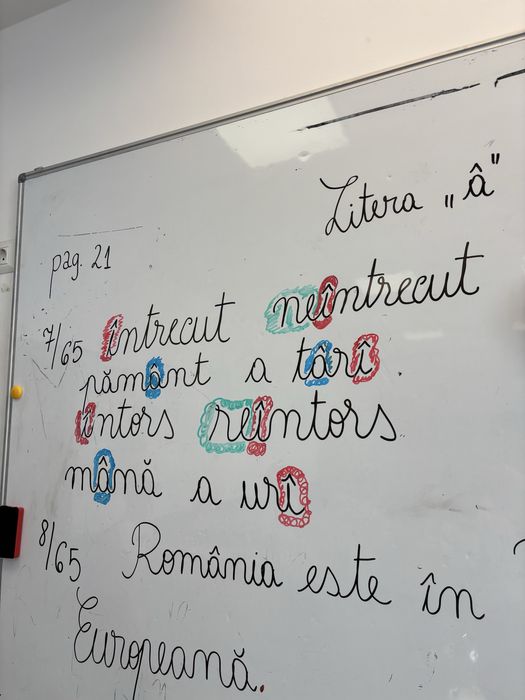 Litera „â"
pag. 21
7/65 întrecut neîntrecut
pământ a târî.
întors reîntors
mână a urî
8/65 România este în
Europeană.